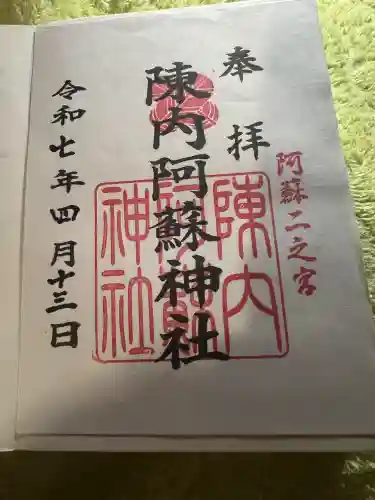 奉拝
阿蘇二之宮
陳内阿蘇神社
陳内阿蘇神社
令和七年四月十三日